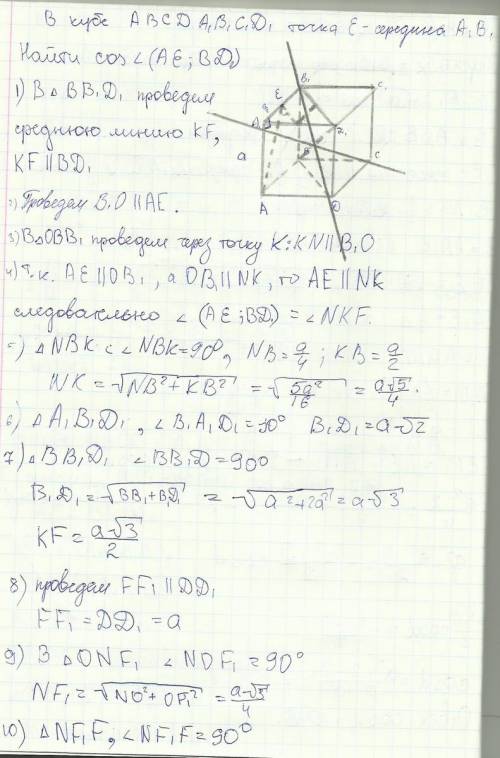 В кубе ABCDA₁B₁C₁D₁ точка E-середина A₁B₁
Найти cos∠(AE; BD₁)
1) В △BB₁D₁ проведем
среднюю линию KF,
KF ∥ BD₁
2) Проведем B₁O ∥ AE.
3) В △OBB₁ проведем через точку K: KN ∥ B₁O
4) Т.к. AE ∥ OB₁, а OB₁ ∥ NK, то AE ∥ NK
следовательно ∠(AE; BD₁) = ∠NKF.
5) △NBK с ∠NBK=90°, NB=a/4; KB=a/2
NK = √(NB²+KB²) = √(5a²/16) = a√5/4.
6) △A₁B₁D₁, ∠B₁A₁D₁=90° B₁D₁=a√2
7) △BB₁D₁ ∠BB₁D=90°
B₁D₁=√(BB₁+B₁D₁²) = √(a²+2a²)=a√3
KF=a√3/2
8) проведем FF₁ ∥ DD₁
FF₁=DD₁=a
9) В △ONF₁ ∠NOF₁=90°
NF₁=√(NO²+OF₁²)=a√5/4
10) △NF₁F, ∠NF₁F=90°
B₁
C₁
E
a
B
C
A
D